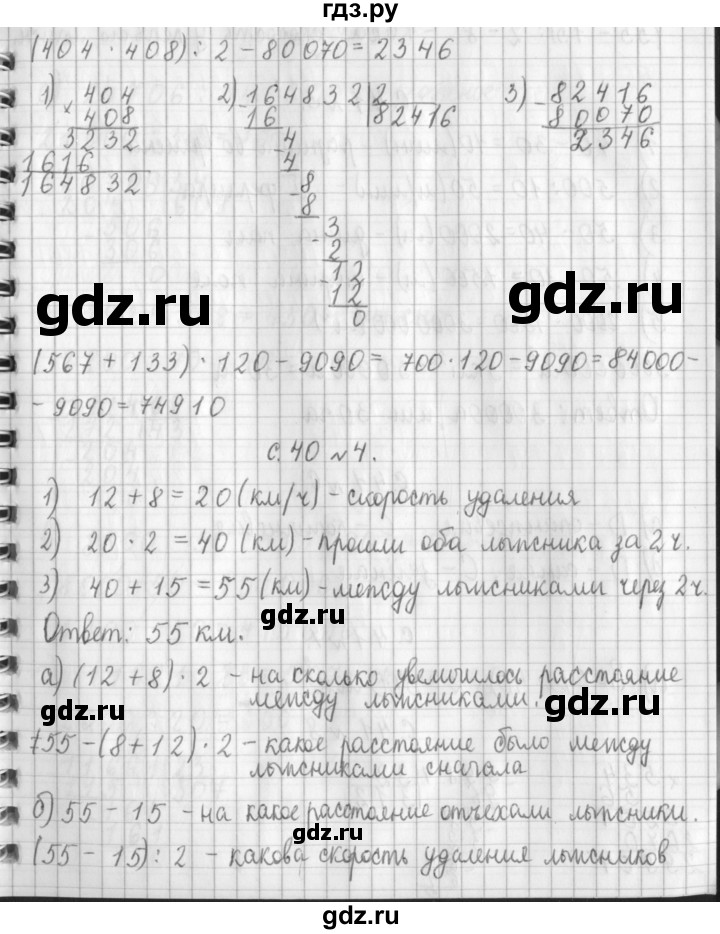 гдз.ру
(404 · 408) : 2 - 80070 = 2346
1) 404
× 408
3232
1616
164832
2) 164832 | 2
- 16 | 82416
- 4
4
- 8
8
- 3
2
- 12
12
0
3) - 82416
80070
2346
gdz.ru gdz.ru
(567 + 133) · 120 - 9090 = 700 · 120 - 9090 = 84000 -
- 9090 = 74910
с. 40 №4.
1) 12 + 8 = 20 (км/ч) - скорость удаления
2) 20 · 2 = 40 (км) - прошли оба лыжника за 2 ч.
3) 40 + 15 = 55 (км) - между лыжниками через 2 ч.
gdz.ru
Ответ: 55 км.
а) (12 + 8) · 2 - на сколько увеличилось расстояние
между лыжниками.
gdz.ru
gdz.ru
55 - (8 + 12) · 2 - какое расстояние было между
лыжниками сначала
б) 55 - 15 - на какое расстояние отъехали лыжники.
gdz.ru
(55 - 15) : 2 - какова скорость удаления лыжников
gdz.ru